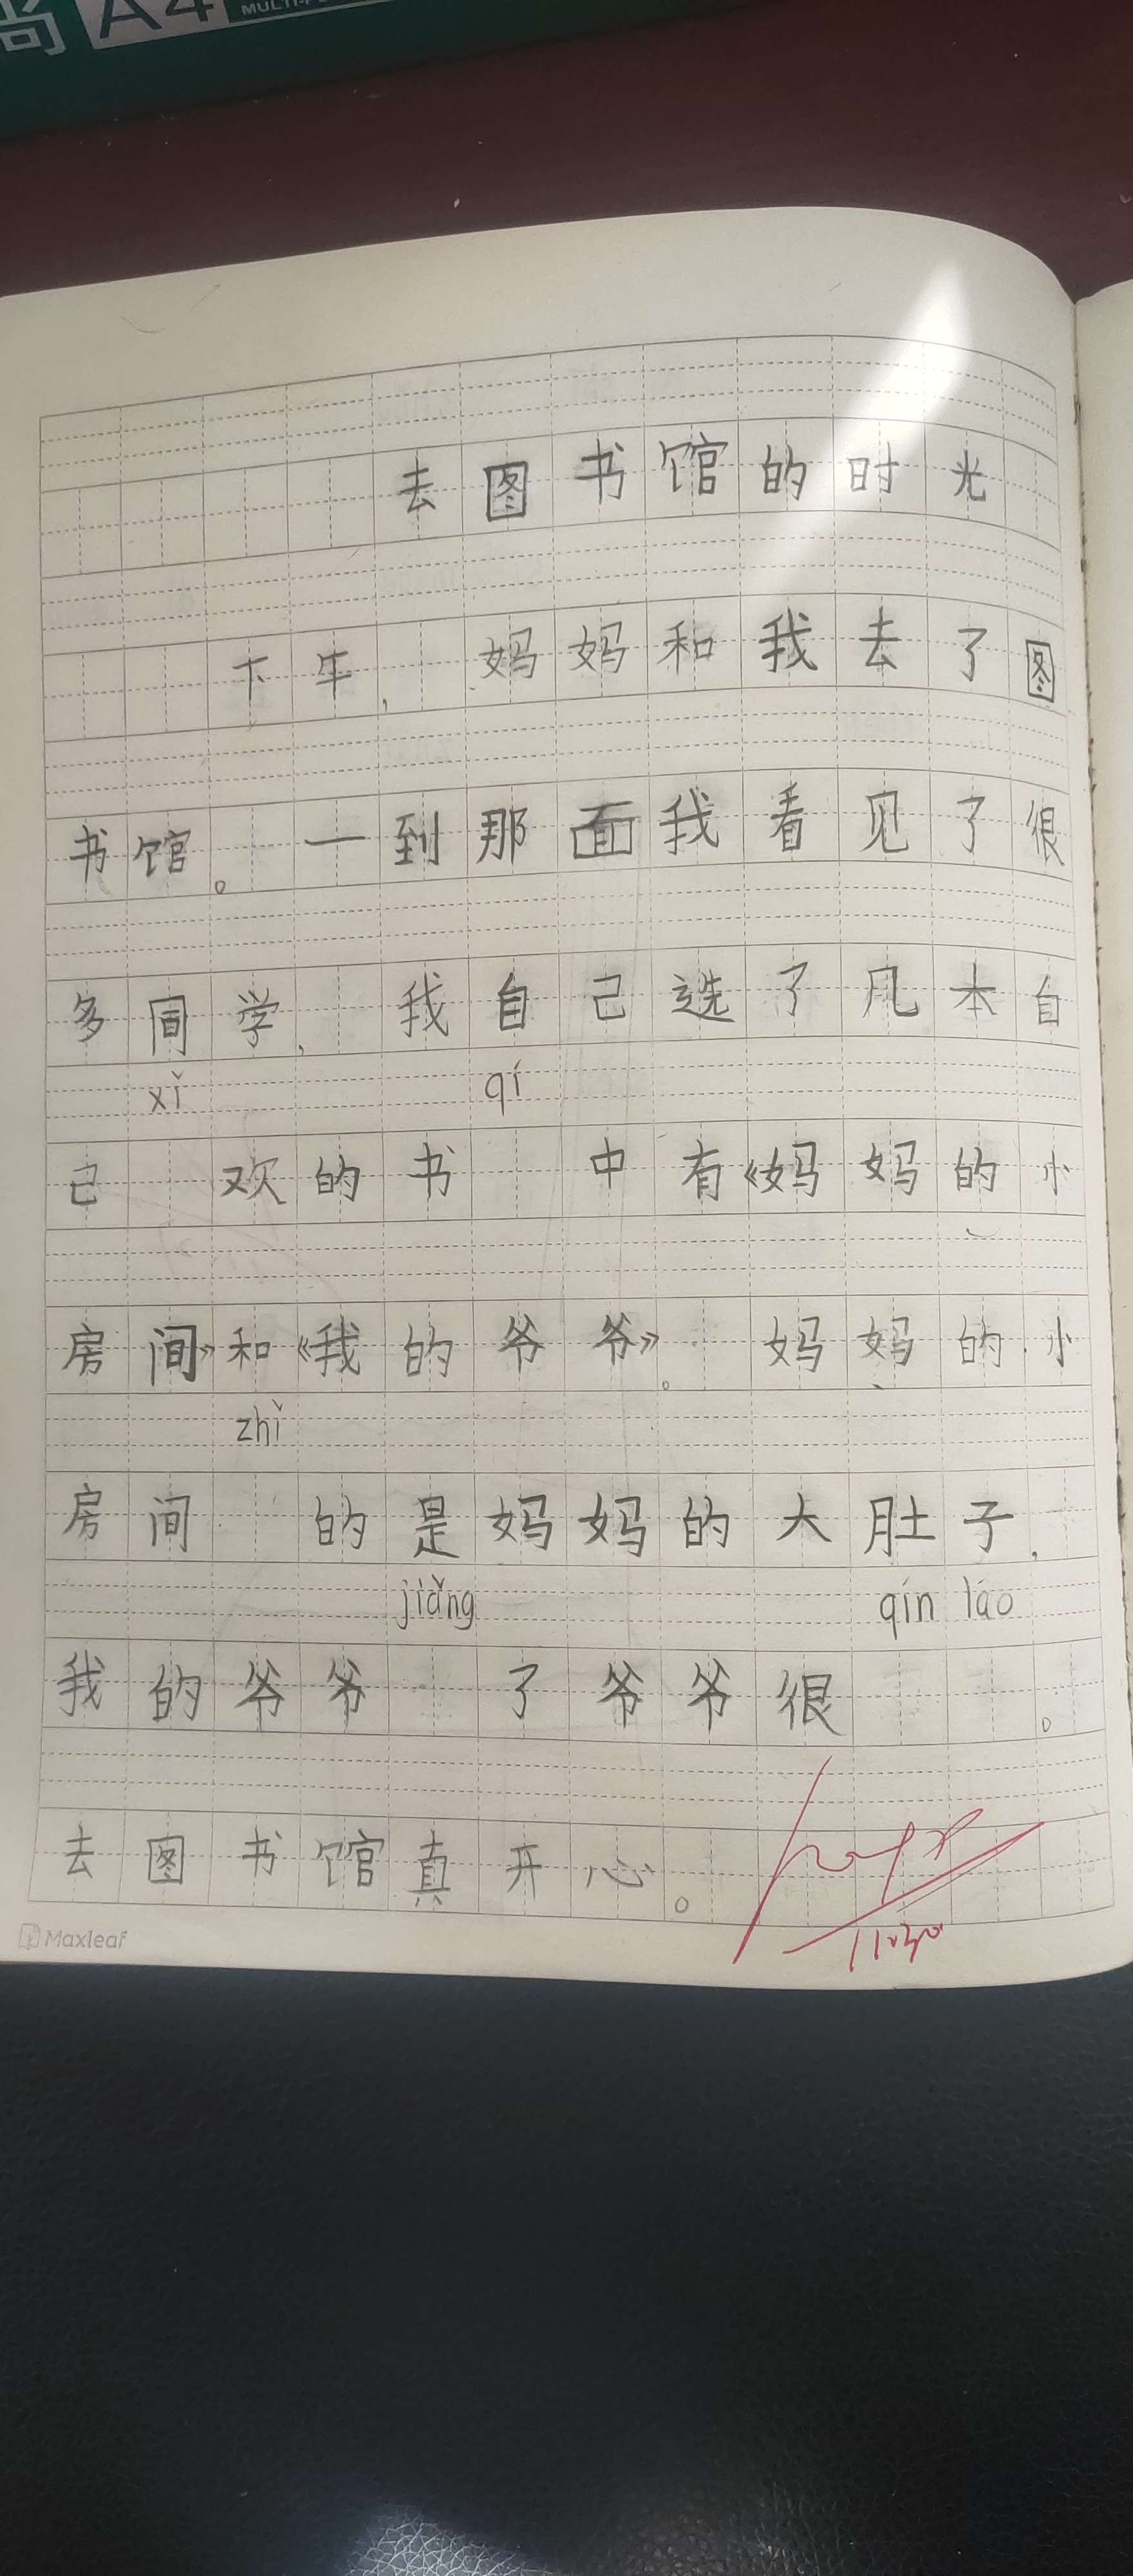 尚 A4
去图书馆的时光
下午，妈妈和我去了图
书馆。一到那面我看见了很
多同学，我自己选了几本自
xǐ qí
己 欢的书 中有《妈妈的小
房间》和《我的爷爷》。妈妈的小
zhǐ
房间 的是妈妈的大肚子，
jiǎng qín láo
我的爷爷 了爷爷很 。
去图书馆真开心。
Maxleaf